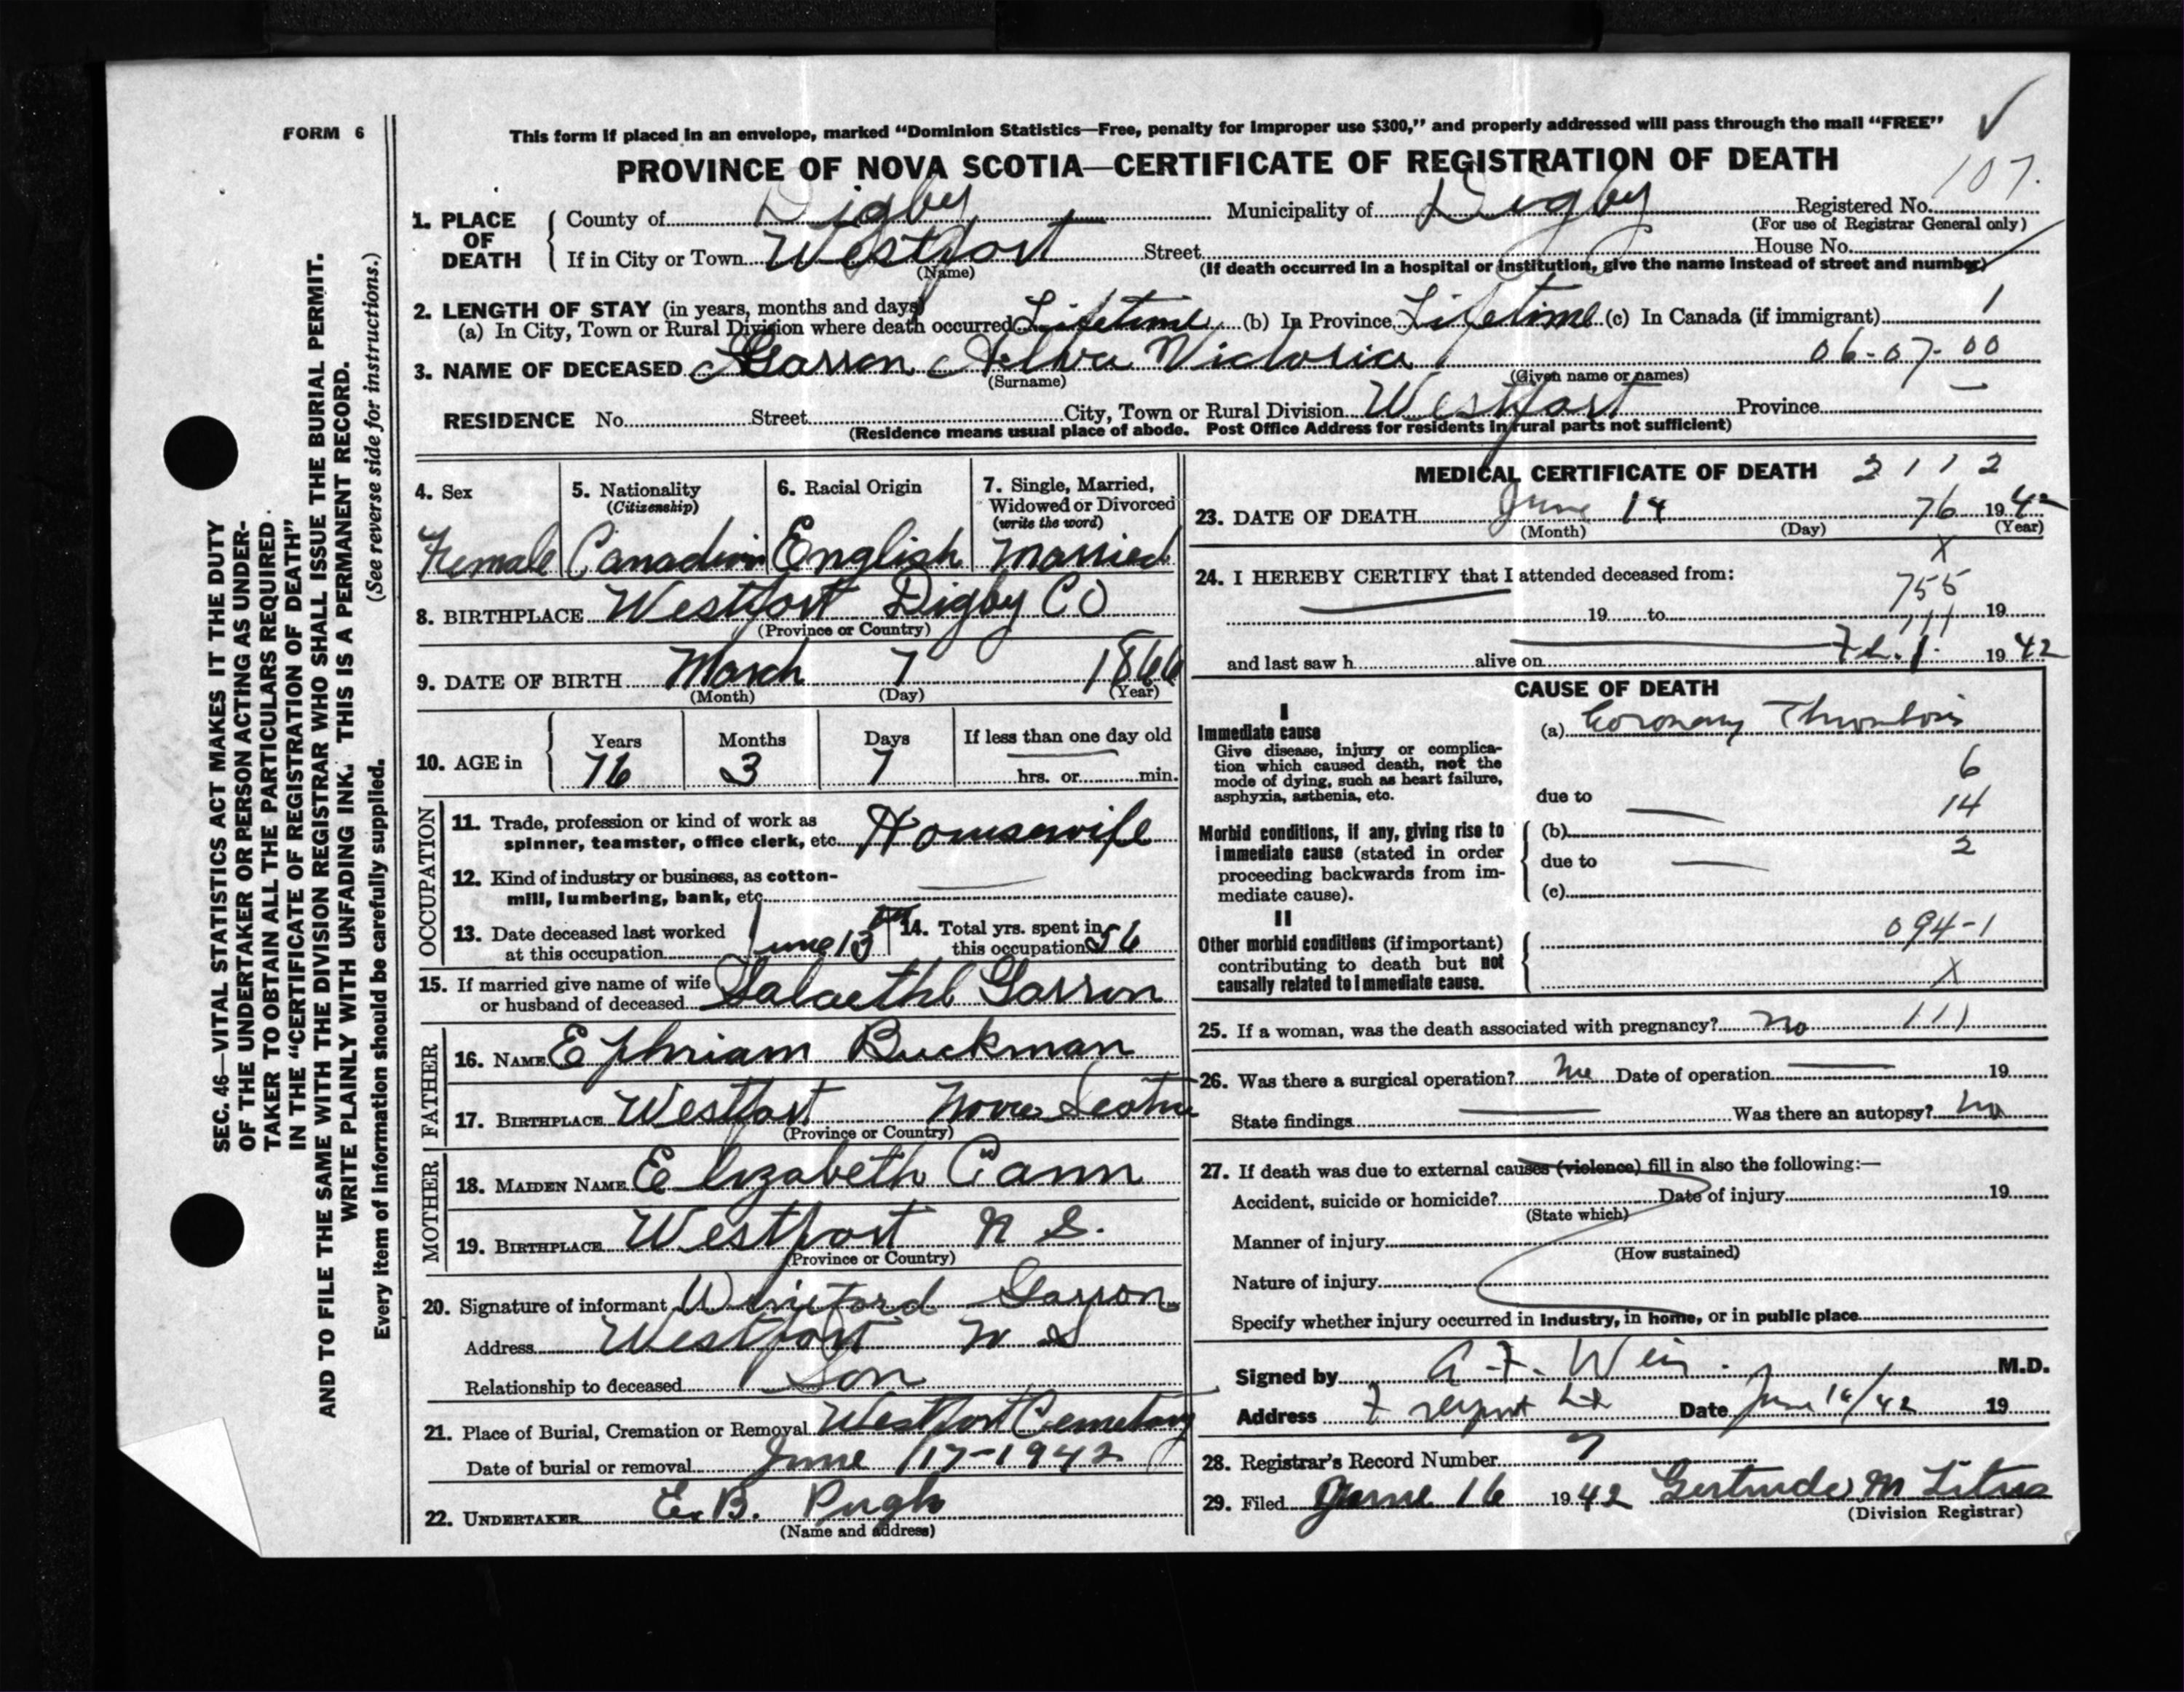 FORM 6
This form if placed in an envelope, marked "Dominion Statistics—Free, penalty for improper use $300," and properly addressed will pass through the mail "FREE"
PROVINCE OF NOVA SCOTIA—CERTIFICATE OF REGISTRATION OF DEATH
107.
1. PLACE OF DEATH
County of Digby Municipality of Digby Registered No.
(For use of Registrar General only)
If in City or Town Westport Street House No.
(Name) (If death occurred in a hospital or institution, give the name instead of street and number)
2. LENGTH OF STAY (in years, months and days)
(a) In City, Town or Rural Division where death occurred Lifetime (b) In Province Lifetime (c) In Canada (if immigrant) 1
3. NAME OF DECEASED Garron Victoria 06-07-00
(Surname) (Given name or names)
RESIDENCE No. Street City, Town or Rural Division Westport Province
(Residence means usual place of abode. Post Office Address for residents in rural parts not sufficient)
4. Sex 5. Nationality (Citizenship) 6. Racial Origin 7. Single, Married, Widowed or Divorced (write the word)
Female Canadian English Married
8. BIRTHPLACE Westport Digby CO
(Province or Country)
9. DATE OF BIRTH March 7 1866
(Month) (Day) (Year)
10. AGE in Years Months Days If less than one day old
76 3 7 hrs. or min.
OCCUPATION
11. Trade, profession or kind of work as
spinner, teamster, office clerk, etc. Housewife
12. Kind of industry or business, as cotton-
mill, lumbering, bank, etc.
13. Date deceased last worked
at this occupation June 13
14. Total yrs. spent in
this occupation 56
15. If married give name of wife
or husband of deceased Garron
FATHER
16. NAME Ephriam Buckman
17. BIRTHPLACE Westport Nova Scotia
(Province or Country)
MOTHER
18. MAIDEN NAME Elizabeth Cann
19. BIRTHPLACE Westport N S.
(Province or Country)
20. Signature of informant Garron
Address Westport N S
Relationship to deceased Son
21. Place of Burial, Cremation or Removal Westport Cemetary
Date of burial or removal June 17-1942
22. UNDERTAKER E. B. Pugh
(Name and address)
MEDICAL CERTIFICATE OF DEATH 2112
23. DATE OF DEATH June 14 76 1942
(Month) (Day) (Year)
X
24. I HEREBY CERTIFY that I attended deceased from:
755
19 to 19
111
and last saw h alive on Feb. 1. 1942
CAUSE OF DEATH
I
Immediate cause
Give disease, injury or complica-
tion which caused death, not the
mode of dying, such as heart failure,
asphyxia, asthenia, etc.
(a) Coronary Thrombosis
6
due to
14
Morbid conditions, if any, giving rise to
immediate cause (stated in order
proceeding backwards from im-
mediate cause).
(b)
2
due to
(c)
II
Other morbid conditions (if important)
contributing to death but not
causally related to immediate cause.
094-1
X
25. If a woman, was the death associated with pregnancy? No 111
26. Was there a surgical operation? Date of operation 19
State findings Was there an autopsy? No
27. If death was due to external causes (violence) fill in also the following:—
Accident, suicide or homicide? Date of injury 19
(State which)
Manner of injury
(How sustained)
Nature of injury
Specify whether injury occurred in industry, in home, or in public place
Signed by A. F. Weir M.D.
Address Freeport Date June 16/42 19
28. Registrar's Record Number 7
29. Filed June 16 1942 Gertrude M Titus
(Division Registrar)
SEC. 46—VITAL STATISTICS ACT MAKES IT THE DUTY
OF THE UNDERTAKER OR PERSON ACTING AS UNDER-
TAKER TO OBTAIN ALL THE PARTICULARS REQUIRED
IN THE "CERTIFICATE OF REGISTRATION OF DEATH"
AND TO FILE THE SAME WITH THE DIVISION REGISTRAR WHO SHALL ISSUE THE BURIAL PERMIT.
WRITE PLAINLY WITH UNFADING INK. THIS IS A PERMANENT RECORD.
(See reverse side for instructions.)
Every item of information should be carefully supplied.